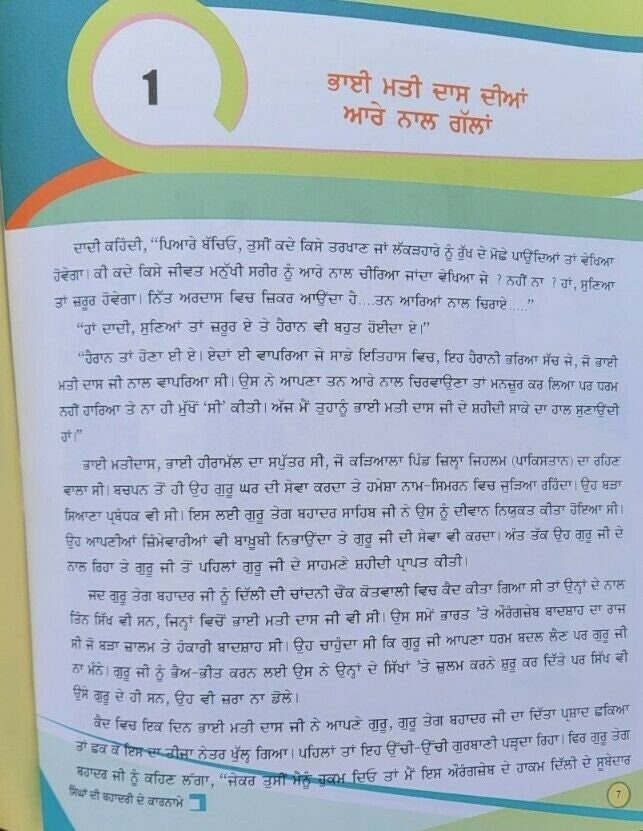 1
ਭਾਈ ਮਤੀ ਦਾਸ ਦੀਆਂ
ਆਰੇ ਨਾਲ ਗੱਲਾਂ
ਦਾਦੀ ਕਹਿੰਦੀ, “ਪਿਆਰੇ ਬੱਚਿਓ, ਤੁਸੀਂ ਕਦੇ ਕਿਸੇ ਤਰਖਾਣ ਜਾਂ ਲੱਕੜਹਾਰੇ ਨੂੰ ਰੁੱਖ ਦੇ ਮੋਛੇ ਪਾਉਂਦਿਆਂ ਤਾਂ ਵੇਖਿਆ
ਹੋਵੇਗਾ। ਕੀ ਕਦੇ ਕਿਸੇ ਜੀਵਤ ਮਨੁੱਖੀ ਸਰੀਰ ਨੂੰ ਆਰੇ ਨਾਲ ਚੀਰਿਆ ਜਾਂਦਾ ਵੇਖਿਆ ਜੇ ? ਨਹੀਂ ਨਾ ? ਹਾਂ, ਸੁਣਿਆ
ਤਾਂ ਜ਼ਰੂਰ ਹੋਵੇਗਾ। ਨਿੱਤ ਅਰਦਾਸ ਵਿਚ ਜ਼ਿਕਰ ਆਉਂਦਾ ਹੈ....ਤਨ ਆਰਿਆਂ ਨਾਲ ਚਿਰਾਏ.....”
“ਹਾਂ ਦਾਦੀ, ਸੁਣਿਆਂ ਤਾਂ ਜ਼ਰੂਰ ਏ ਤੇ ਹੈਰਾਨ ਵੀ ਬਹੁਤ ਹੋਈਦਾ ਏ।”
“ਹੈਰਾਨ ਤਾਂ ਹੋਣਾ ਈ ਏ। ਏਦਾਂ ਈ ਵਾਪਰਿਆ ਜੇ ਸਾਡੇ ਇਤਿਹਾਸ ਵਿਚ, ਇਹ ਹੈਰਾਨੀ ਭਰਿਆ ਸੱਚ ਜੇ, ਜੋ ਭਾਈ
ਮਤੀ ਦਾਸ ਜੀ ਨਾਲ ਵਾਪਰਿਆ ਸੀ। ਉਸ ਨੇ ਆਪਣਾ ਤਨ ਆਰੇ ਨਾਲ ਚਿਰਵਾਉਣਾ ਤਾਂ ਮਨਜ਼ੂਰ ਕਰ ਲਿਆ ਪਰ ਧਰਮ
ਨਹੀਂ ਹਾਰਿਆ ਤੇ ਨਾ ਹੀ ਮੁੱਖੋਂ ‘ਸੀ’ ਕੀਤੀ। ਅੱਜ ਮੈਂ ਤੁਹਾਨੂੰ ਭਾਈ ਮਤੀ ਦਾਸ ਜੀ ਦੇ ਸ਼ਹੀਦੀ ਸਾਕੇ ਦਾ ਹਾਲ ਸੁਣਾਉਂਦੀ
ਹਾਂ।”
ਭਾਈ ਮਤੀਦਾਸ, ਭਾਈ ਹੀਰਾਮੱਲ ਦਾ ਸਪੁੱਤਰ ਸੀ, ਜੋ ਕੜਿਆਲਾ ਪਿੰਡ ਜ਼ਿਲ੍ਹਾ ਜਿਹਲਮ (ਪਾਕਿਸਤਾਨ) ਦਾ ਰਹਿਣ
ਵਾਲਾ ਸੀ। ਬਚਪਨ ਤੋਂ ਹੀ ਉਹ ਗੁਰੂ ਘਰ ਦੀ ਸੇਵਾ ਕਰਦਾ ਤੇ ਹਮੇਸ਼ਾ ਨਾਮ-ਸਿਮਰਨ ਵਿਚ ਜੁੜਿਆ ਰਹਿੰਦਾ। ਉਹ ਬੜਾ
ਸਿਆਣਾ ਪ੍ਰਬੰਧਕ ਵੀ ਸੀ। ਇਸ ਲਈ ਗੁਰੂ ਤੇਗ ਬਹਾਦਰ ਸਾਹਿਬ ਜੀ ਨੇ ਉਸ ਨੂੰ ਦੀਵਾਨ ਨਿਯੁਕਤ ਕੀਤਾ ਹੋਇਆ ਸੀ।
ਉਹ ਆਪਣੀਆਂ ਜ਼ਿੰਮੇਵਾਰੀਆਂ ਵੀ ਬਾਖ਼ੂਬੀ ਨਿਭਾਉਂਦਾ ਤੇ ਗੁਰੂ ਜੀ ਦੀ ਸੇਵਾ ਵੀ ਕਰਦਾ। ਅੰਤ ਤੱਕ ਉਹ ਗੁਰੂ ਜੀ ਦੇ
ਨਾਲ ਰਿਹਾ ਤੇ ਗੁਰੂ ਜੀ ਤੋਂ ਪਹਿਲਾਂ ਗੁਰੂ ਜੀ ਦੇ ਸਾਹਮਣੇ ਸ਼ਹੀਦੀ ਪ੍ਰਾਪਤ ਕੀਤੀ।
ਜਦ ਗੁਰੂ ਤੇਗ ਬਹਾਦਰ ਜੀ ਨੂੰ ਦਿੱਲੀ ਦੀ ਚਾਂਦਨੀ ਚੌਂਕ ਕੋਤਵਾਲੀ ਵਿਚ ਕੈਦ ਕੀਤਾ ਗਿਆ ਸੀ ਤਾਂ ਉਨ੍ਹਾਂ ਦੇ ਨਾਲ
ਤਿੰਨ ਸਿੱਖ ਵੀ ਸਨ, ਜਿਨ੍ਹਾਂ ਵਿਚੋਂ ਭਾਈ ਮਤੀ ਦਾਸ ਜੀ ਵੀ ਸੀ। ਉਸ ਸਮੇਂ ਭਾਰਤ ’ਤੇ ਔਰੰਗਜ਼ੇਬ ਬਾਦਸ਼ਾਹ ਦਾ ਰਾਜ
ਸੀ ਜੋ ਬੜਾ ਜ਼ਾਲਮ ਤੇ ਹੰਕਾਰੀ ਬਾਦਸ਼ਾਹ ਸੀ। ਉਹ ਚਾਹੁੰਦਾ ਸੀ ਕਿ ਗੁਰੂ ਜੀ ਆਪਣਾ ਧਰਮ ਬਦਲ ਲੈਣ ਪਰ ਗੁਰੂ ਜੀ
ਨਾ ਮੰਨੇ। ਗੁਰੂ ਜੀ ਨੂੰ ਭੈਅ-ਭੀਤ ਕਰਨ ਲਈ ਉਸ ਨੇ ਉਨ੍ਹਾਂ ਦੇ ਸਿੱਖਾਂ ’ਤੇ ਜ਼ੁਲਮ ਕਰਨੇ ਸ਼ੁਰੂ ਕਰ ਦਿੱਤੇ ਪਰ ਸਿੱਖ ਵੀ
ਉਸੇ ਗੁਰੂ ਦੇ ਹੀ ਸਨ, ਉਹ ਵੀ ਜ਼ਰਾ ਨਾ ਡੋਲੇ।
ਕੈਦ ਵਿਚ ਇਕ ਦਿਨ ਭਾਈ ਮਤੀ ਦਾਸ ਜੀ ਨੇ ਆਪਣੇ ਗੁਰੂ, ਗੁਰੂ ਤੇਗ ਬਹਾਦਰ ਜੀ ਦਾ ਦਿੱਤਾ ਪ੍ਰਸ਼ਾਦ ਛਕਿਆ
ਤਾਂ ਛਕ ਕੇ ਇਸ ਦਾ ਤੀਜਾ ਨੇਤਰ ਖੁੱਲ੍ਹ ਗਿਆ। ਪਹਿਲਾਂ ਤਾਂ ਇਹ ਉੱਚੀ-ਉੱਚੀ ਗੁਰਬਾਣੀ ਪੜ੍ਹਦਾ ਰਿਹਾ। ਫਿਰ ਗੁਰੂ ਤੇਗ
ਬਹਾਦਰ ਜੀ ਨੂੰ ਕਹਿਣ ਲੱਗਾ, “ਜੇਕਰ ਤੁਸੀਂ ਮੈਨੂੰ ਹੁਕਮ ਦਿਓ ਤਾਂ ਮੈਂ ਇਸ ਔਰੰਗਜ਼ੇਬ ਦੇ ਹਾਕਮ ਦਿੱਲੀ ਦੇ ਸੂਬੇਦਾਰ
ਸਿੰਘਾਂ ਦੀ ਬਹਾਦਰੀ ਦੇ ਕਾਰਨਾਮੇ
7